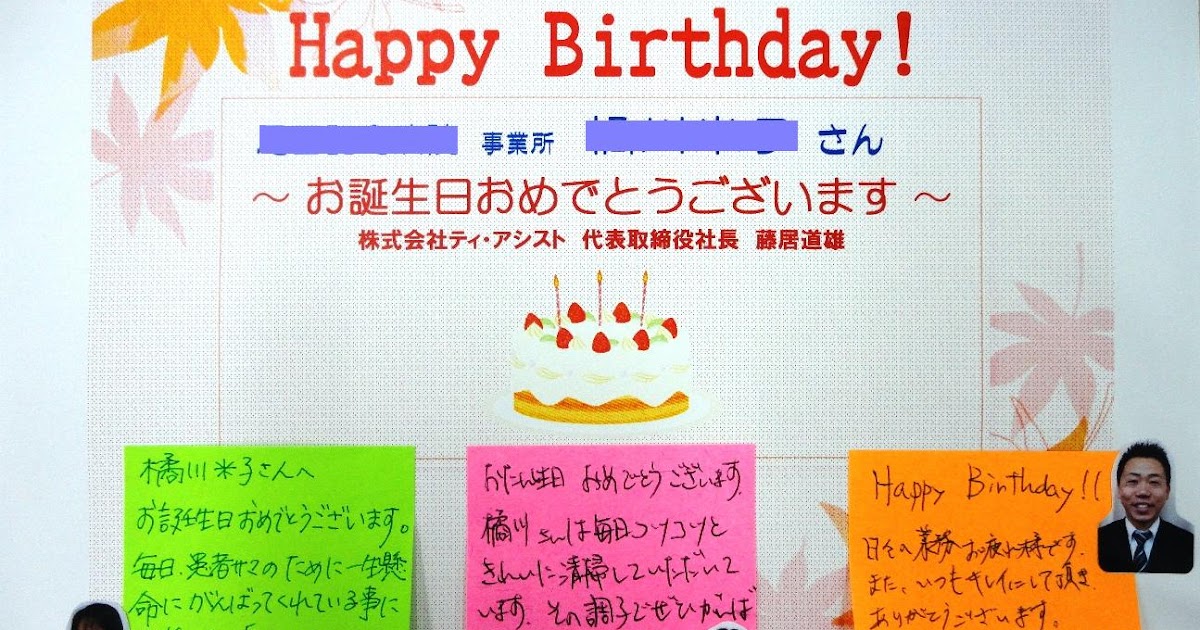 Happy Birthday!
事業所 さん
～ お誕生日おめでとうございます ～
株式会社ティ・アシスト 代表取締役社長 藤居道雄
橘川米子さんへ
お誕生日おめでとうございます。
毎日、患者サマのために一生懸
命にがんばってくれている事に
おたん生日 おめでとうございます。
橘川さんは毎日コツコツと
きれいに清掃していただいて
います。その調子でぜひがんば
Happy Birthday!!
日々の業務お疲れ様です。
また、いつもキレイにして頂き
ありがとうございます。